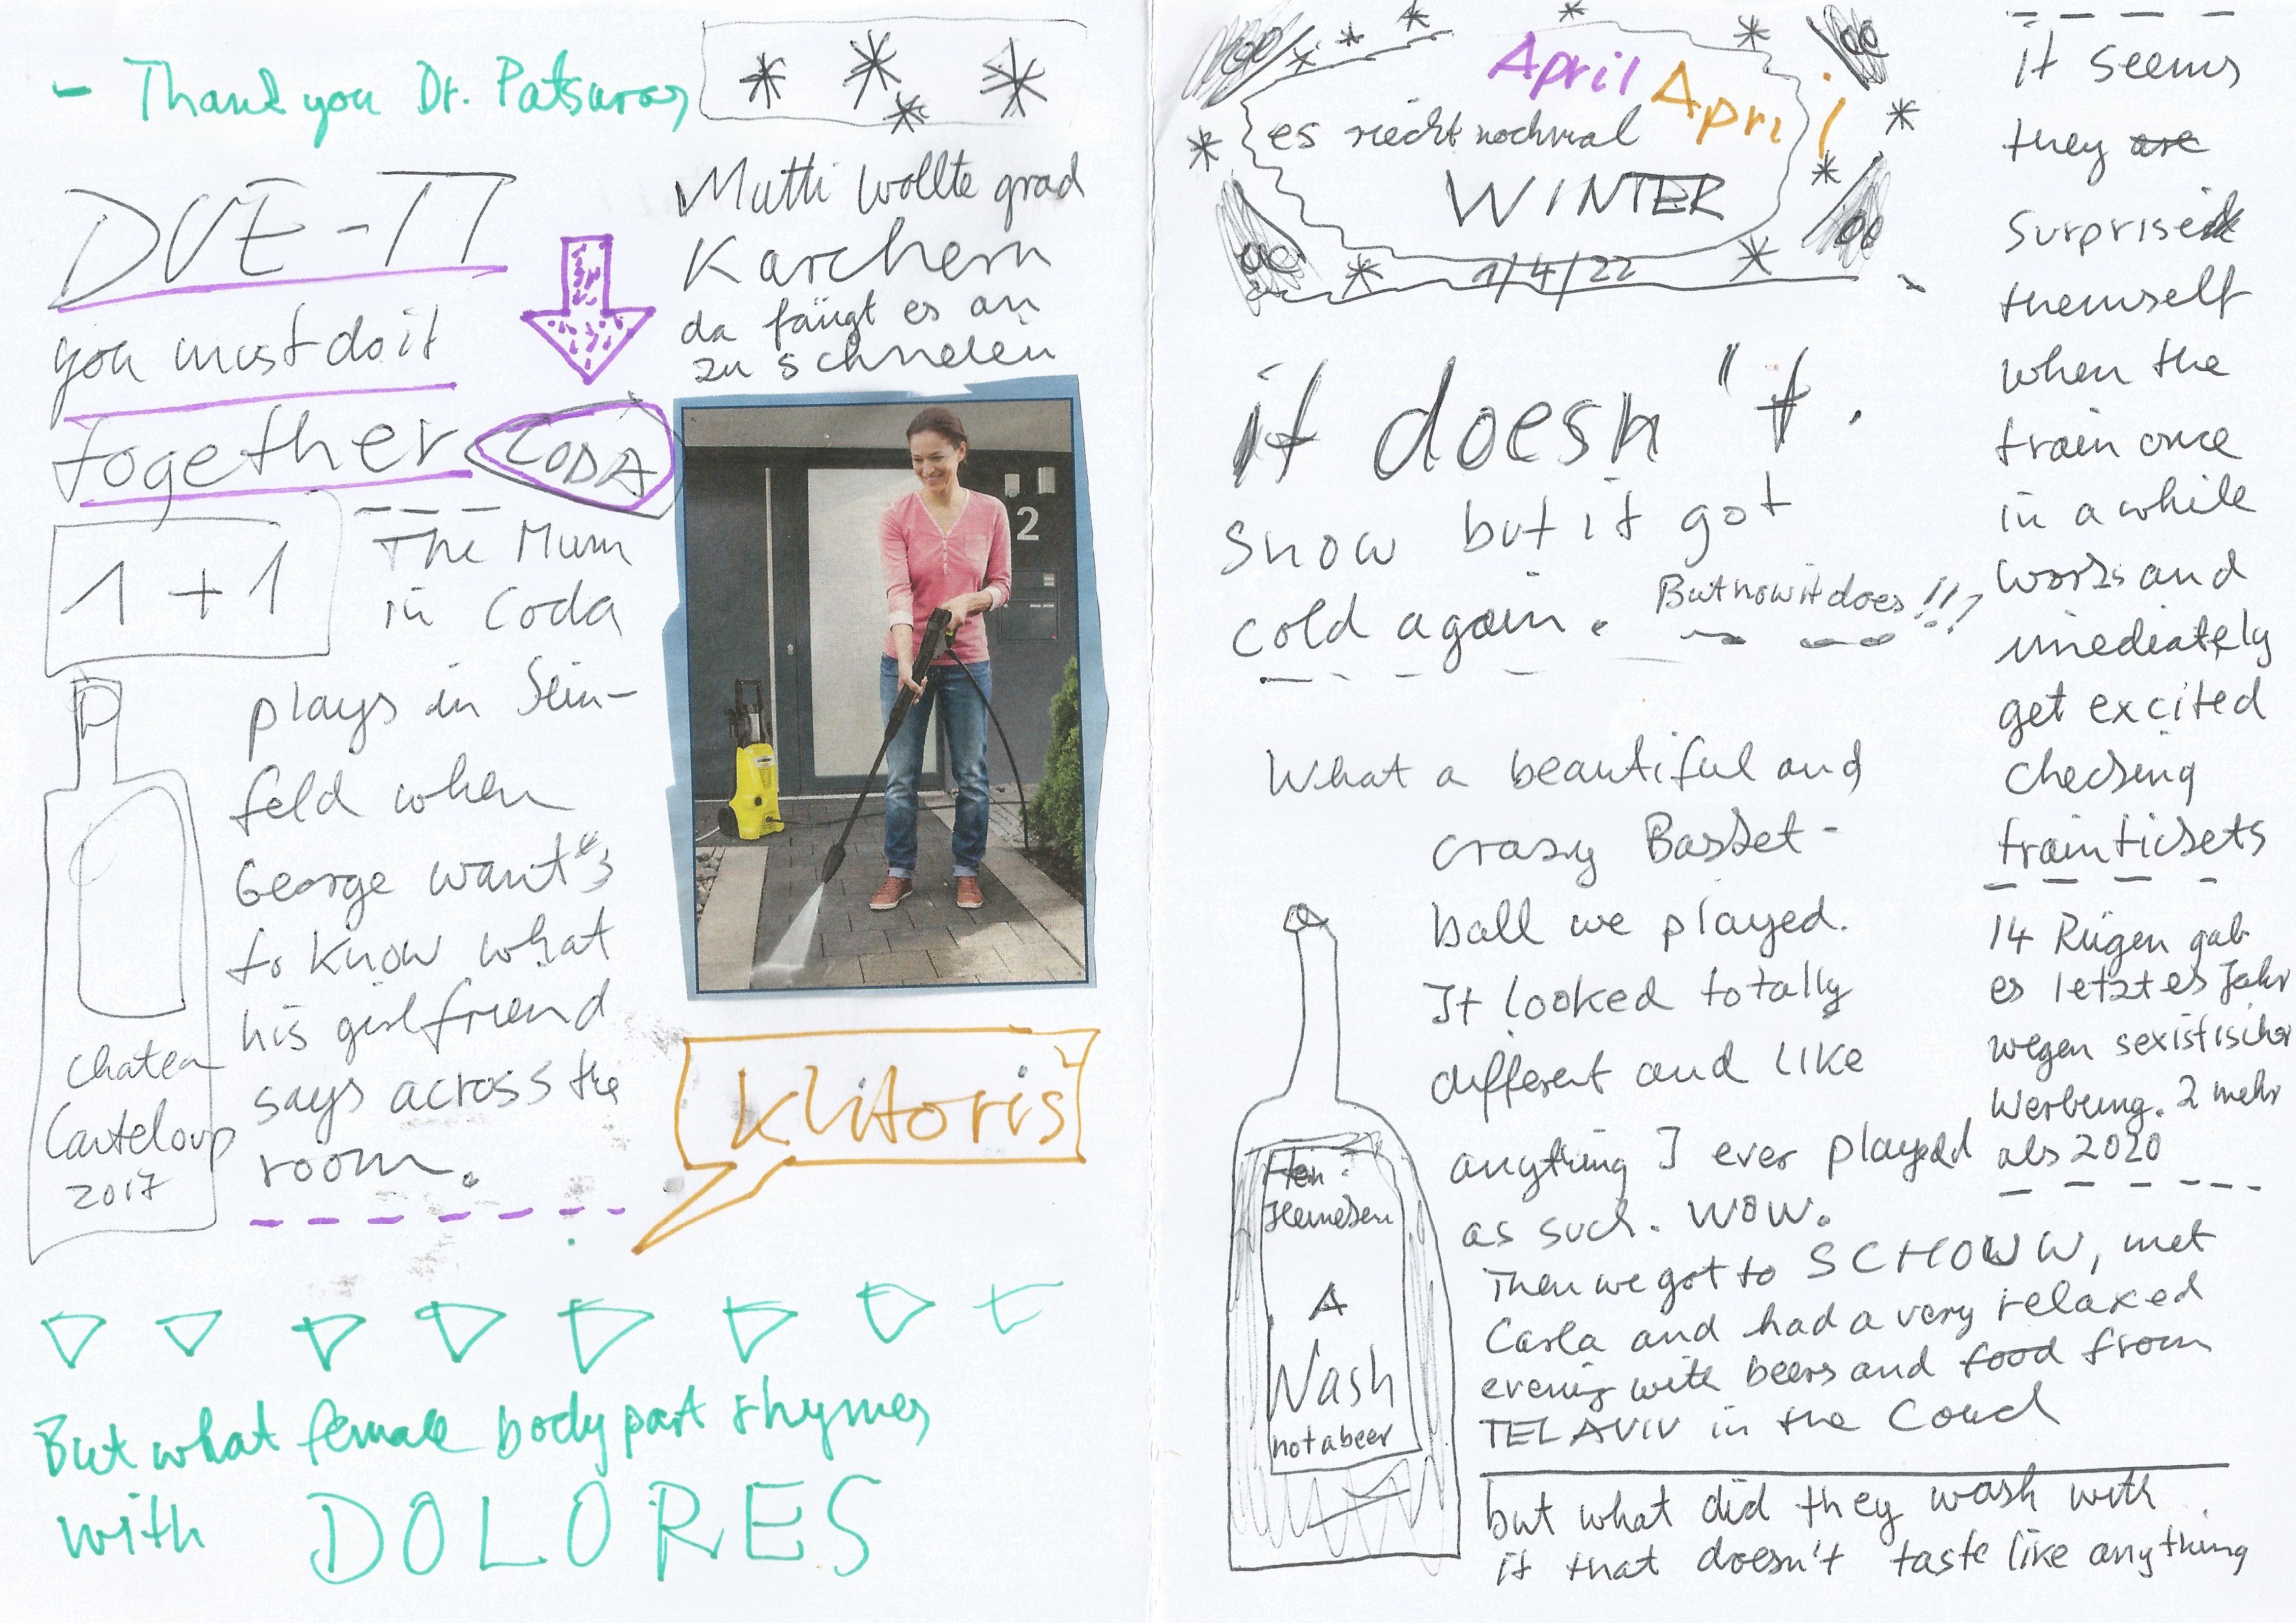 - Thank you Dr. Patsuras
DUE-TT
you must do it
together
CODA
1 + 1
The Mum
in Coda
plays in Sein-
feld when
George want's
to know what
his girlfriend
says across the
room.
Chatea
Canteloup
2017
Mutti wollte grad
Karchern
da fängt es an
zu schneien
2
Klitoris
But what female body part rhymes
with DOLORES
April April
es riecht nochmal
WINTER
1/4/22
it doesn't.
snow but it got
cold again.
But now it does!!!
What a beautiful and
crazy Basket-
ball we played.
It looked totally
different and like
anything I ever played
as such. WOW.
Then we got to SCHOWW, met
Carla and had a very relaxed
evening with beers and food from
TEL AVIV in the Couch
Heineken
A
Wash
not a beer
but what did they wash with
it that doesn't taste like anything
it seems
they are
surprised
themself
when the
train once
in a while
works and
imediately
get excited
checking
traintickets
14 Rügen gab
es letztes Jahr
wegen sexistischer
Werbung. 2 mehr
als 2020